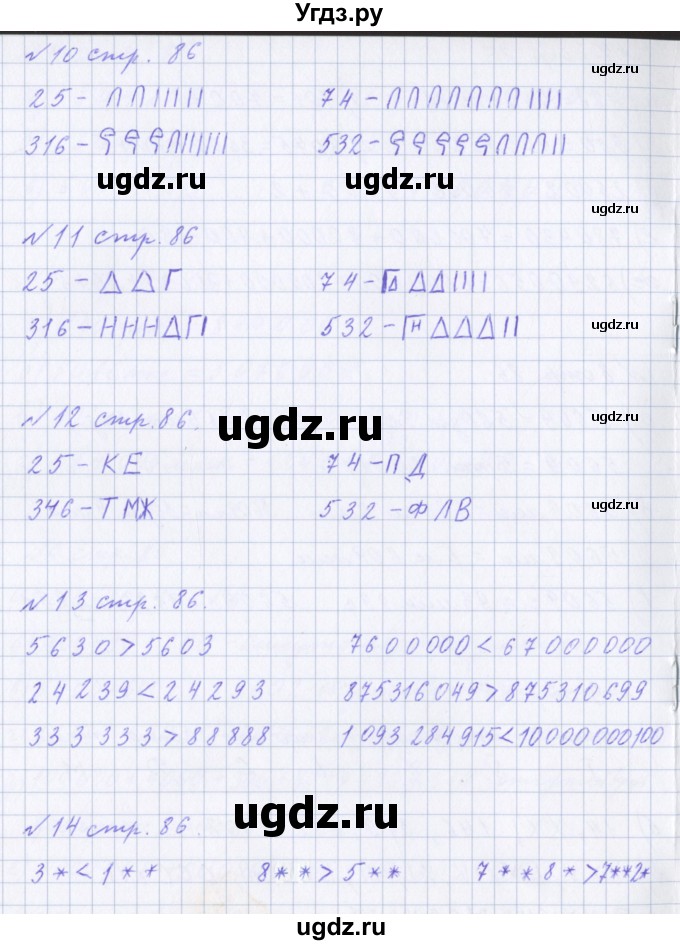 Угдз.ру
№10 стр. 86
ugdz.ru
25 - ∩∩||||| 74 - ∩∩∩∩∩∩∩||||
ugdz.ru
316 - ||||||| 532 - ∩∩∩||
ugdz.ru ugdz.ru
ugdz.ru
№11 стр. 86
25 - Δ Δ Г 74 - Δ Δ ||||
316 - НННΔГ| 532 - Δ Δ Δ ||
ugdz.ru
№12 стр. 86.
ugdz.ru
ugdz.ru
25 - КЕ 74 - ПД
346 - ТМЖ 532 - ФЛВ
ugdz.ru
№13 стр. 86.
5630 > 5603 7600000 < 67000000
24239 < 24293 875316049 > 875310699
333 333 > 88888 1 093 284 915 < 10000000100
ugdz.ru
№14 стр. 86.
ugdz.ru
3* < 1** 8** > 5** 7**8* > 7**2*
ugdz.ru